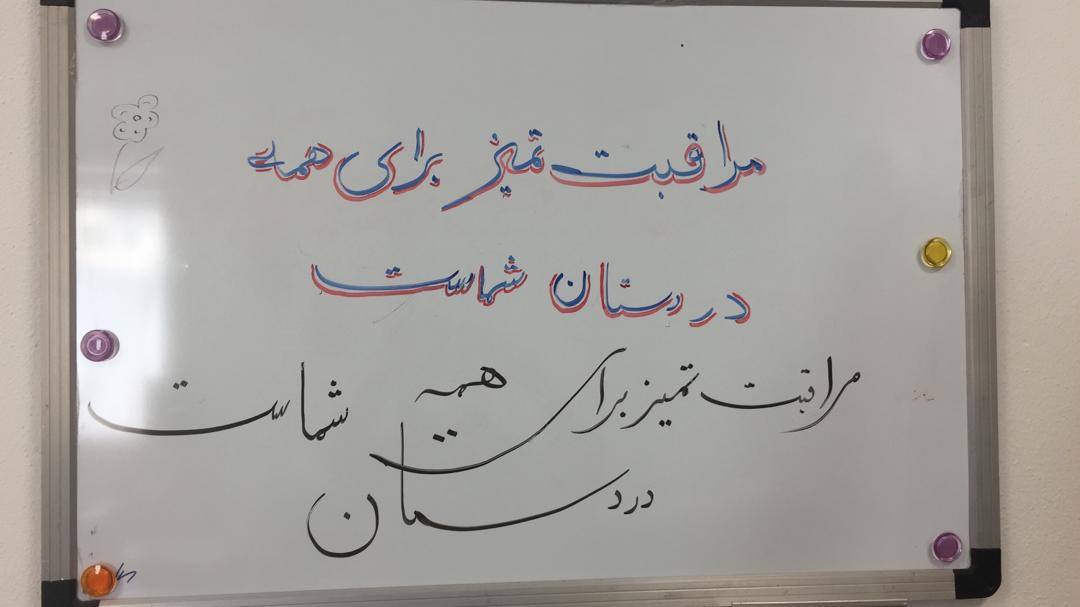 مراقبت تمیز برای همه
در دستان شماست
مراقبت تمیز برای همه
در دستان شماست